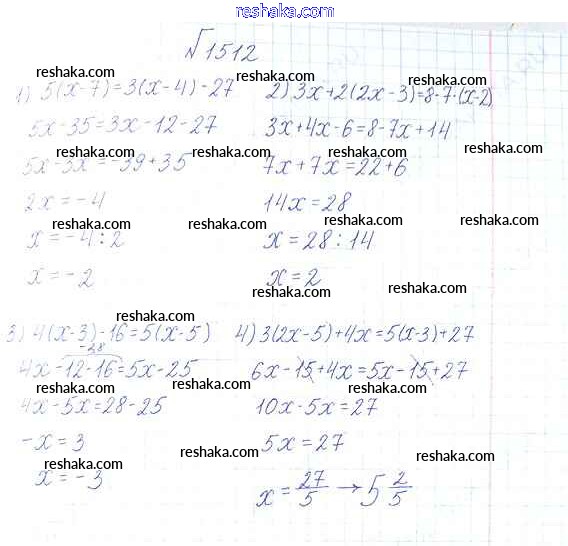 reshaka.com
√1512
reshaka.com
reshaka.com
1) 5(x-7)=3(x-4)-27
2) 3x+2(2x-3)=8-7·(x-2)
reshaka.com
reshaka.com
5x-35=3x-12-27
3x+4x-6=8-7x+14
reshaka.com
reshaka.com
reshaka.com
5x-3x=-39+35
7x+7x=22+6
2x=-4
14x=28
reshaka.com
reshaka.com
reshaka.com
x=-4:2
x=28:14
x=-2
x=2
reshaka.com
reshaka.com
reshaka.com
3) 4(x-3)-16=5(x-5)
4) 3(2x-5)+4x=5(x-3)+27
-28
reshaka.com
4x-12-16=5x-25
6x-15+4x=5x-15+27
reshaka.com
reshaka.com
4x-5x=28-25
10x-5x=27
reshaka.com
reshaka.com
-x=3
5x=27
reshaka.com
reshaka.com
reshaka.com
x=-3
x=27/5→5 2/5
reshaka.com